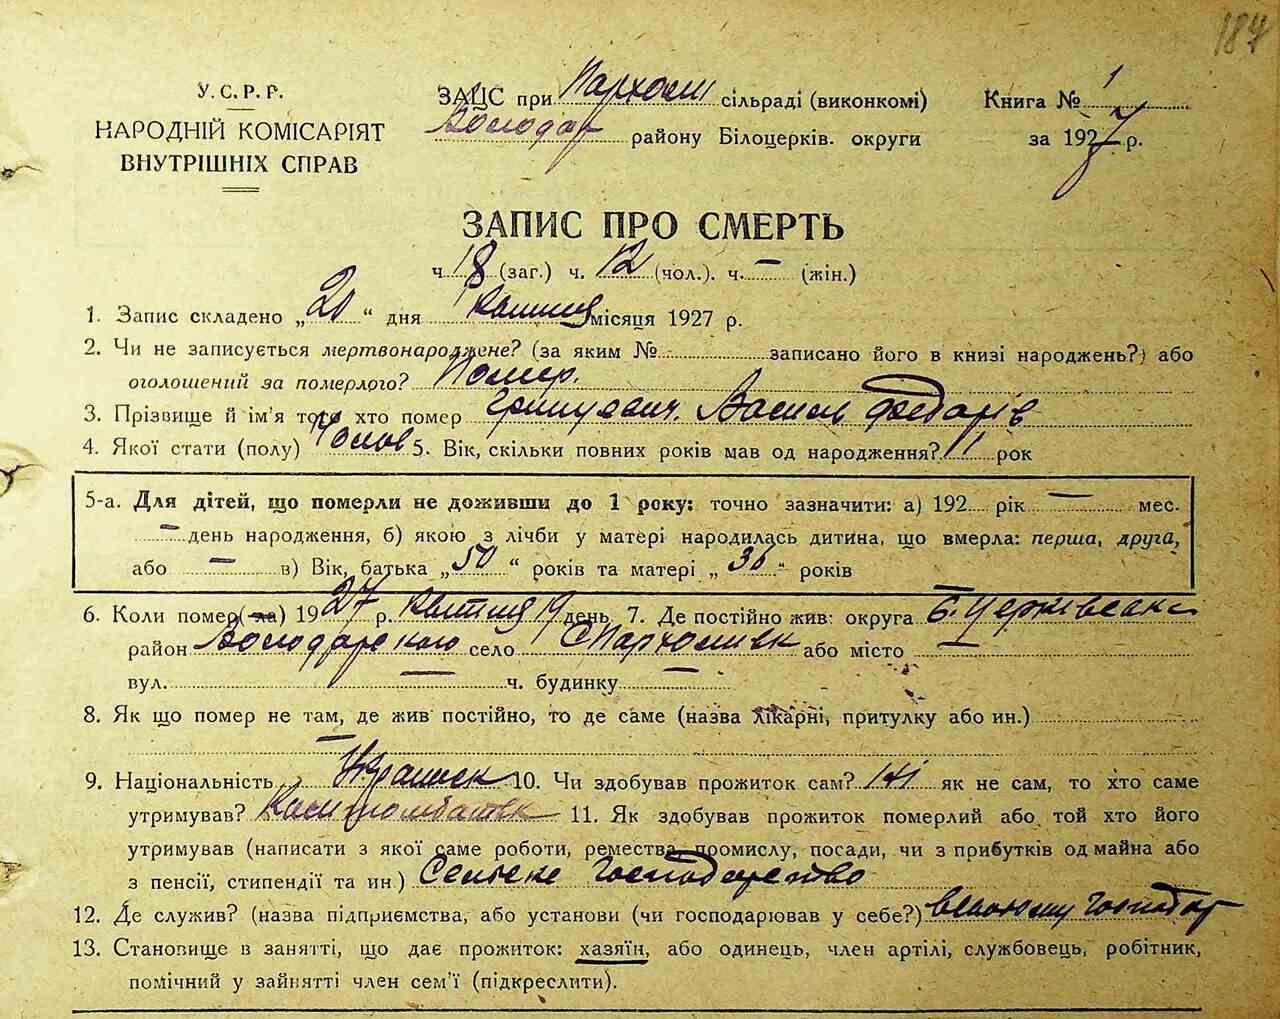 187
У.С.Р.Р.
НАРОДНІЙ КОМІСАРІЯТ
ВНУТРІШНІХ СПРАВ
ЗАЦС при Пархом сільраді (виконкомі)
Володар району Білоцерків. округи
Книга № 1
за 1927 р.
ЗАПИС ПРО СМЕРТЬ
ч. 18 (заг.) ч. 12 (чол.). ч. — (жін.)
1. Запис складено „20“ дня Квітня місяця 1927 р.
2. Чи не записується мертвонароджене? (за яким № записано його в книзі народжень?) або
оголошений за померлого? Помер.
3. Прізвище й ім'я того хто помер Василь Федорів
4. Якої стати (полу) Чолов 5. Вік, скільки повних років мав од народження? 11 рок
5-а. Для дітей, що померли не доживши до 1 року: точно зазначити: а) 192 рік — мес.
— день народження, б) якою з лічби у матері народилась дитина, що вмерла: перша, друга,
або — в) Вік, батька „50“ років та матері „36“ років
6. Коли помер(ла) 1927 р. Квітня 19 день 7. Де постійно жив: округа Б. Церківська
район Володарского село Пархомівк або місто —
вул. — ч. будинку —
8. Як що помер не там, де жив постійно, то де саме (назва лікарні, притулку або ин.)
—
9. Національність Українск 10. Чи здобував прожиток сам? Ні як не сам, то хто саме
утримував? 11. Як здобував прожиток померлий або той хто його
утримував (написати з якої саме роботи, ремества, промислу, посади, чи з прибутків од майна або
з пенсії, стипендії та ин) Сельске Господарство
12. Де служив? (назва підприємства, або установи (чи господарював у себе?) Господар
13. Становище в занятті, що дає прожиток: хазяїн, або одинець, член артілі, службовець, робітник,
помічний у зайнятті член сем'ї (підкреслити).